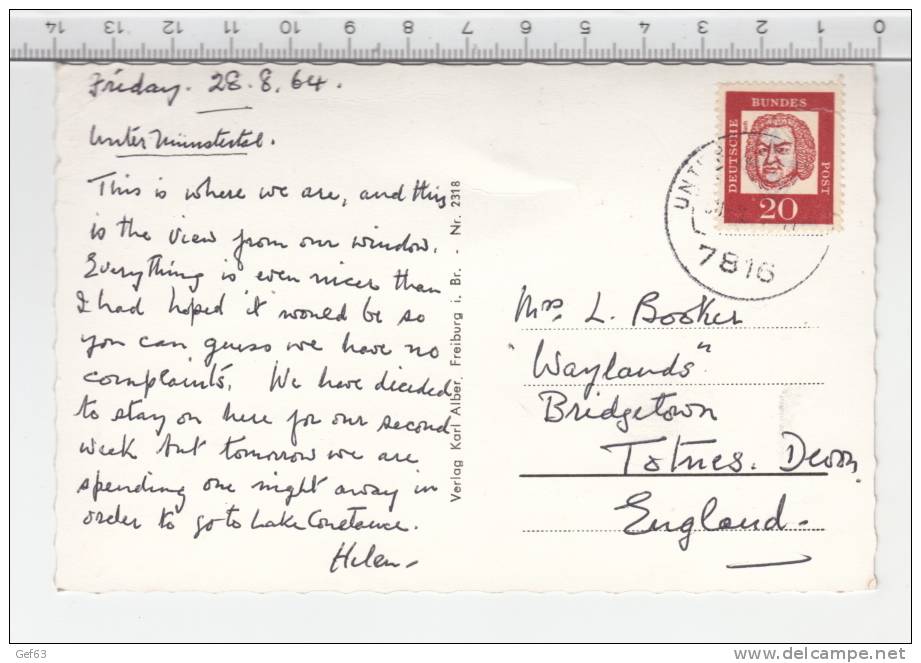 14 13 12 11 10 9 8 7 6 5 4 3 2 1 0
Friday. 28.8.64.
Untermünstertal.
This is where we are, and this
is the view from our window.
Everything is even nicer than
I had hoped it would be so
you can guess we have no
complaints. We have decided
to stay on here for our second
week but tomorrow we are
spending one night away in
order to go to Lake Constance.
Helen
Verlag Karl Alber, Freiburg i. Br. - Nr. 2318
DEUTSCHE
BUNDES
POST
20
UNT
7816
Mrs. L. Booker
"Waylands"
Bridgetown
Totnes. Devon
England.
Gef63
www.delcampe.net